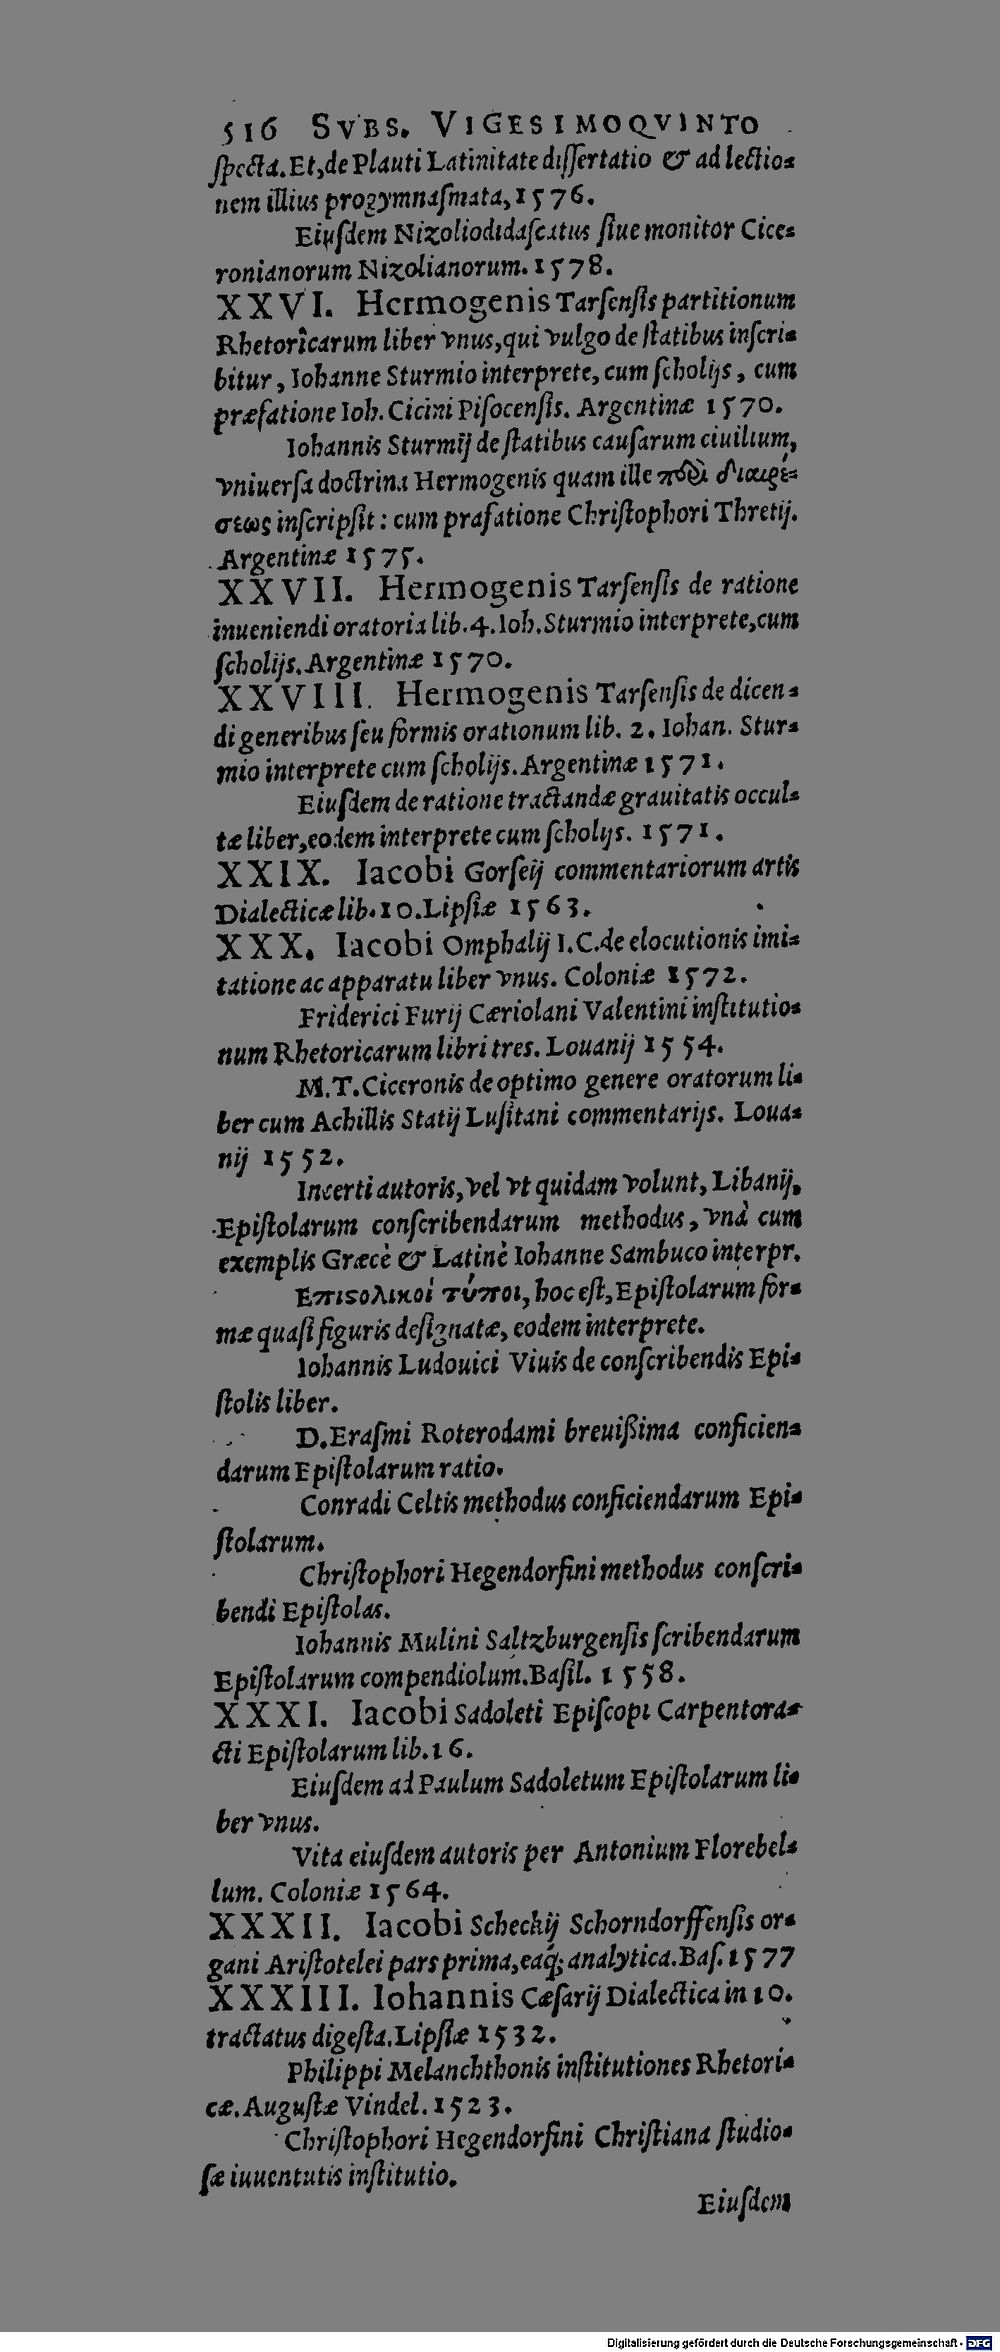 516 SVBS. VIGESIMOQVINTO
ſpecta. Et, de Plauti Latinitate diſſertatio & ad lectio-
nem illius progymnaſmata, 1576.
Eiuſdem Nizoliodidaſcatus ſiue monitor Cice-
ronianorum Nizolianorum. 1578.
XXVI. Hermogenis Tarſenſis partitionum
Rhetoricarum liber vnus, qui vulgo de ſtatibus inſcri-
bitur, Iohanne Sturmio interprete, cum ſcholijs, cum
præfatione Ioh. Cicini Piſocenſis. Argentinæ 1570.
Iohannis Sturmij de ſtatibus cauſarum ciuilium,
vniuerſa doctrina Hermogenis quam ille περὶ διαιρέ-
σεως inſcripſit: cum præfatione Chriſtophori Thretij.
Argentinæ 1575.
XXVII. Hermogenis Tarſenſis de ratione
inueniendi oratoria lib. 4. Ioh. Sturmio interprete, cum
ſcholijs. Argentinæ 1570.
XXVIII. Hermogenis Tarſenſis de dicen-
di generibus ſeu formis orationum lib. 2. Iohan. Stur-
mio interprete cum ſcholijs. Argentinæ 1571.
Eiuſdem de ratione tractandæ grauitatis occul-
tæ liber, eodem interprete cum ſcholijs. 1571.
XXIX. Iacobi Gorſeij commentariorum artis
Dialecticæ lib. 10. Lipſiæ 1563.
XXX. Iacobi Omphalij I.C. de elocutionis imi-
tatione ac apparatu liber vnus. Coloniæ 1572.
Friderici Furij Cæriolani Valentini inſtitutio-
num Rhetoricarum libri tres. Louanij 1554.
M.T. Ciceronis de optimo genere oratorum li-
ber cum Achillis Statij Luſitani commentarijs. Loua-
nij 1552.
Incerti autoris, vel vt quidam volunt, Libanij,
Epiſtolarum conſcribendarum methodus, vnà cum
exemplis Græcè & Latinè Iohanne Sambuco interpr.
Επιϛολικοὶ τύποι, hoc eſt, Epiſtolarum for-
mæ quaſi figuris deſignatæ, eodem interprete.
Iohannis Ludouici Viuis de conſcribendis Epi-
ſtolis liber.
D. Eraſmi Roterodami breuißima conficien-
darum Epiſtolarum ratio.
Conradi Celtis methodus conficiendarum Epi-
ſtolarum.
Chriſtophori Hegendorfini methodus conſcri-
bendi Epiſtolas.
Iohannis Mulini Saltzburgenſis ſcribendarum
Epiſtolarum compendiolum. Baſil. 1558.
XXXI. Iacobi Sadoleti Epiſcopi Carpentora-
cti Epiſtolarum lib. 16.
Eiuſdem ad Paulum Sadoletum Epiſtolarum li-
ber vnus.
Vita eiuſdem autoris per Antonium Florebel-
lum. Coloniæ 1564.
XXXII. Iacobi Scheckij Schorndorffenſis or-
gani Ariſtotelei pars prima, eaq́; analytica. Baſ. 1577
XXXIII. Iohannis Cæſarij Dialectica in 10.
tractatus digeſta. Lipſiæ 1532.
Philippi Melanchthonis inſtitutiones Rhetori-
cæ. Auguſtæ Vindel. 1523.
Chriſtophori Hegendorfini Chriſtiana ſtudio-
ſæ iuuentutis inſtitutio.
Eiuſdem
Digitalisierung gefördert durch die Deutsche Forschungsgemeinschaft - DFG